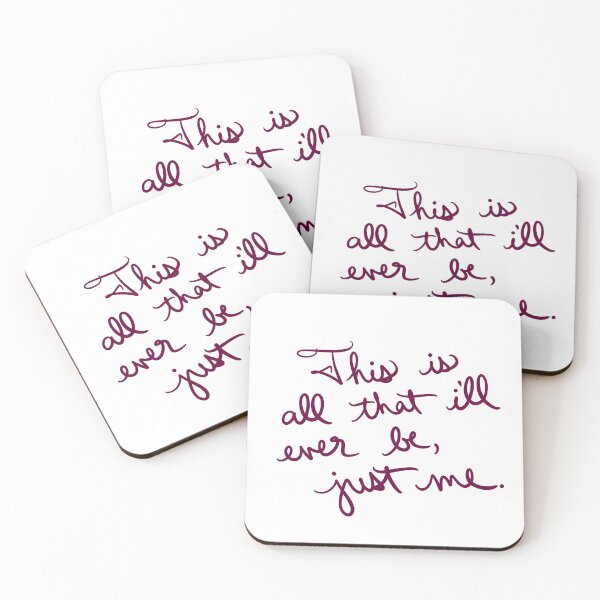 This is
all that i'll
This is
all that i'll
ever be,
just me.
This is
all that i'll
ever be,
just
This is
all that i'll
ever be,
just me.